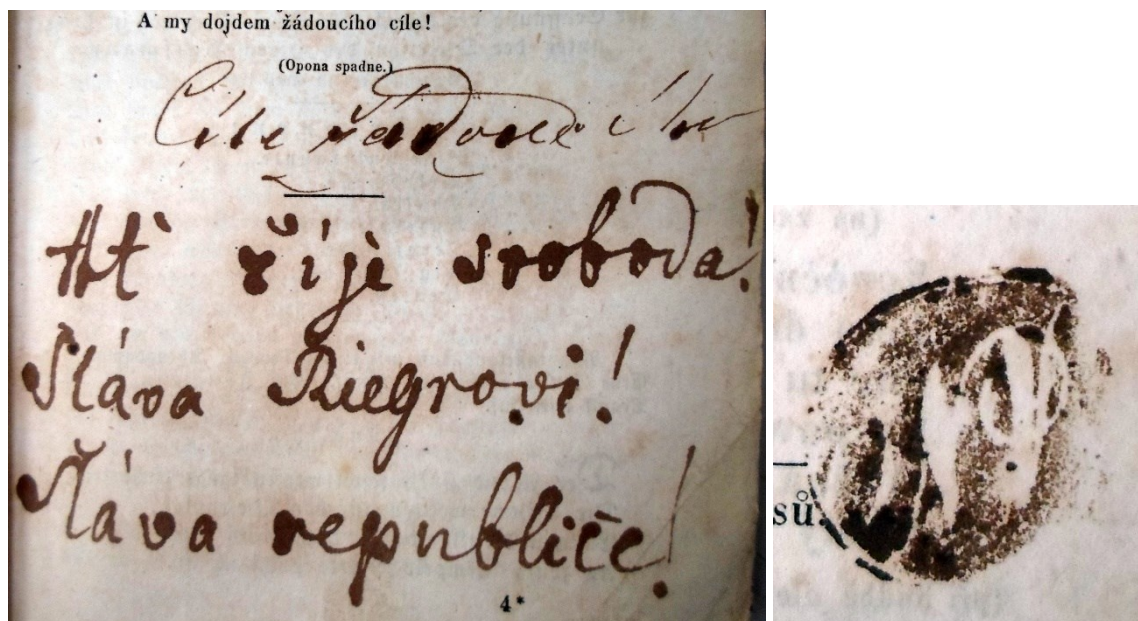 A my dojdem žádoucího cíle!
(Opona spadne.)
Cíle
Ať žije svoboda!
Sláva Riegrovi!
Sláva republice!
4*
sů.